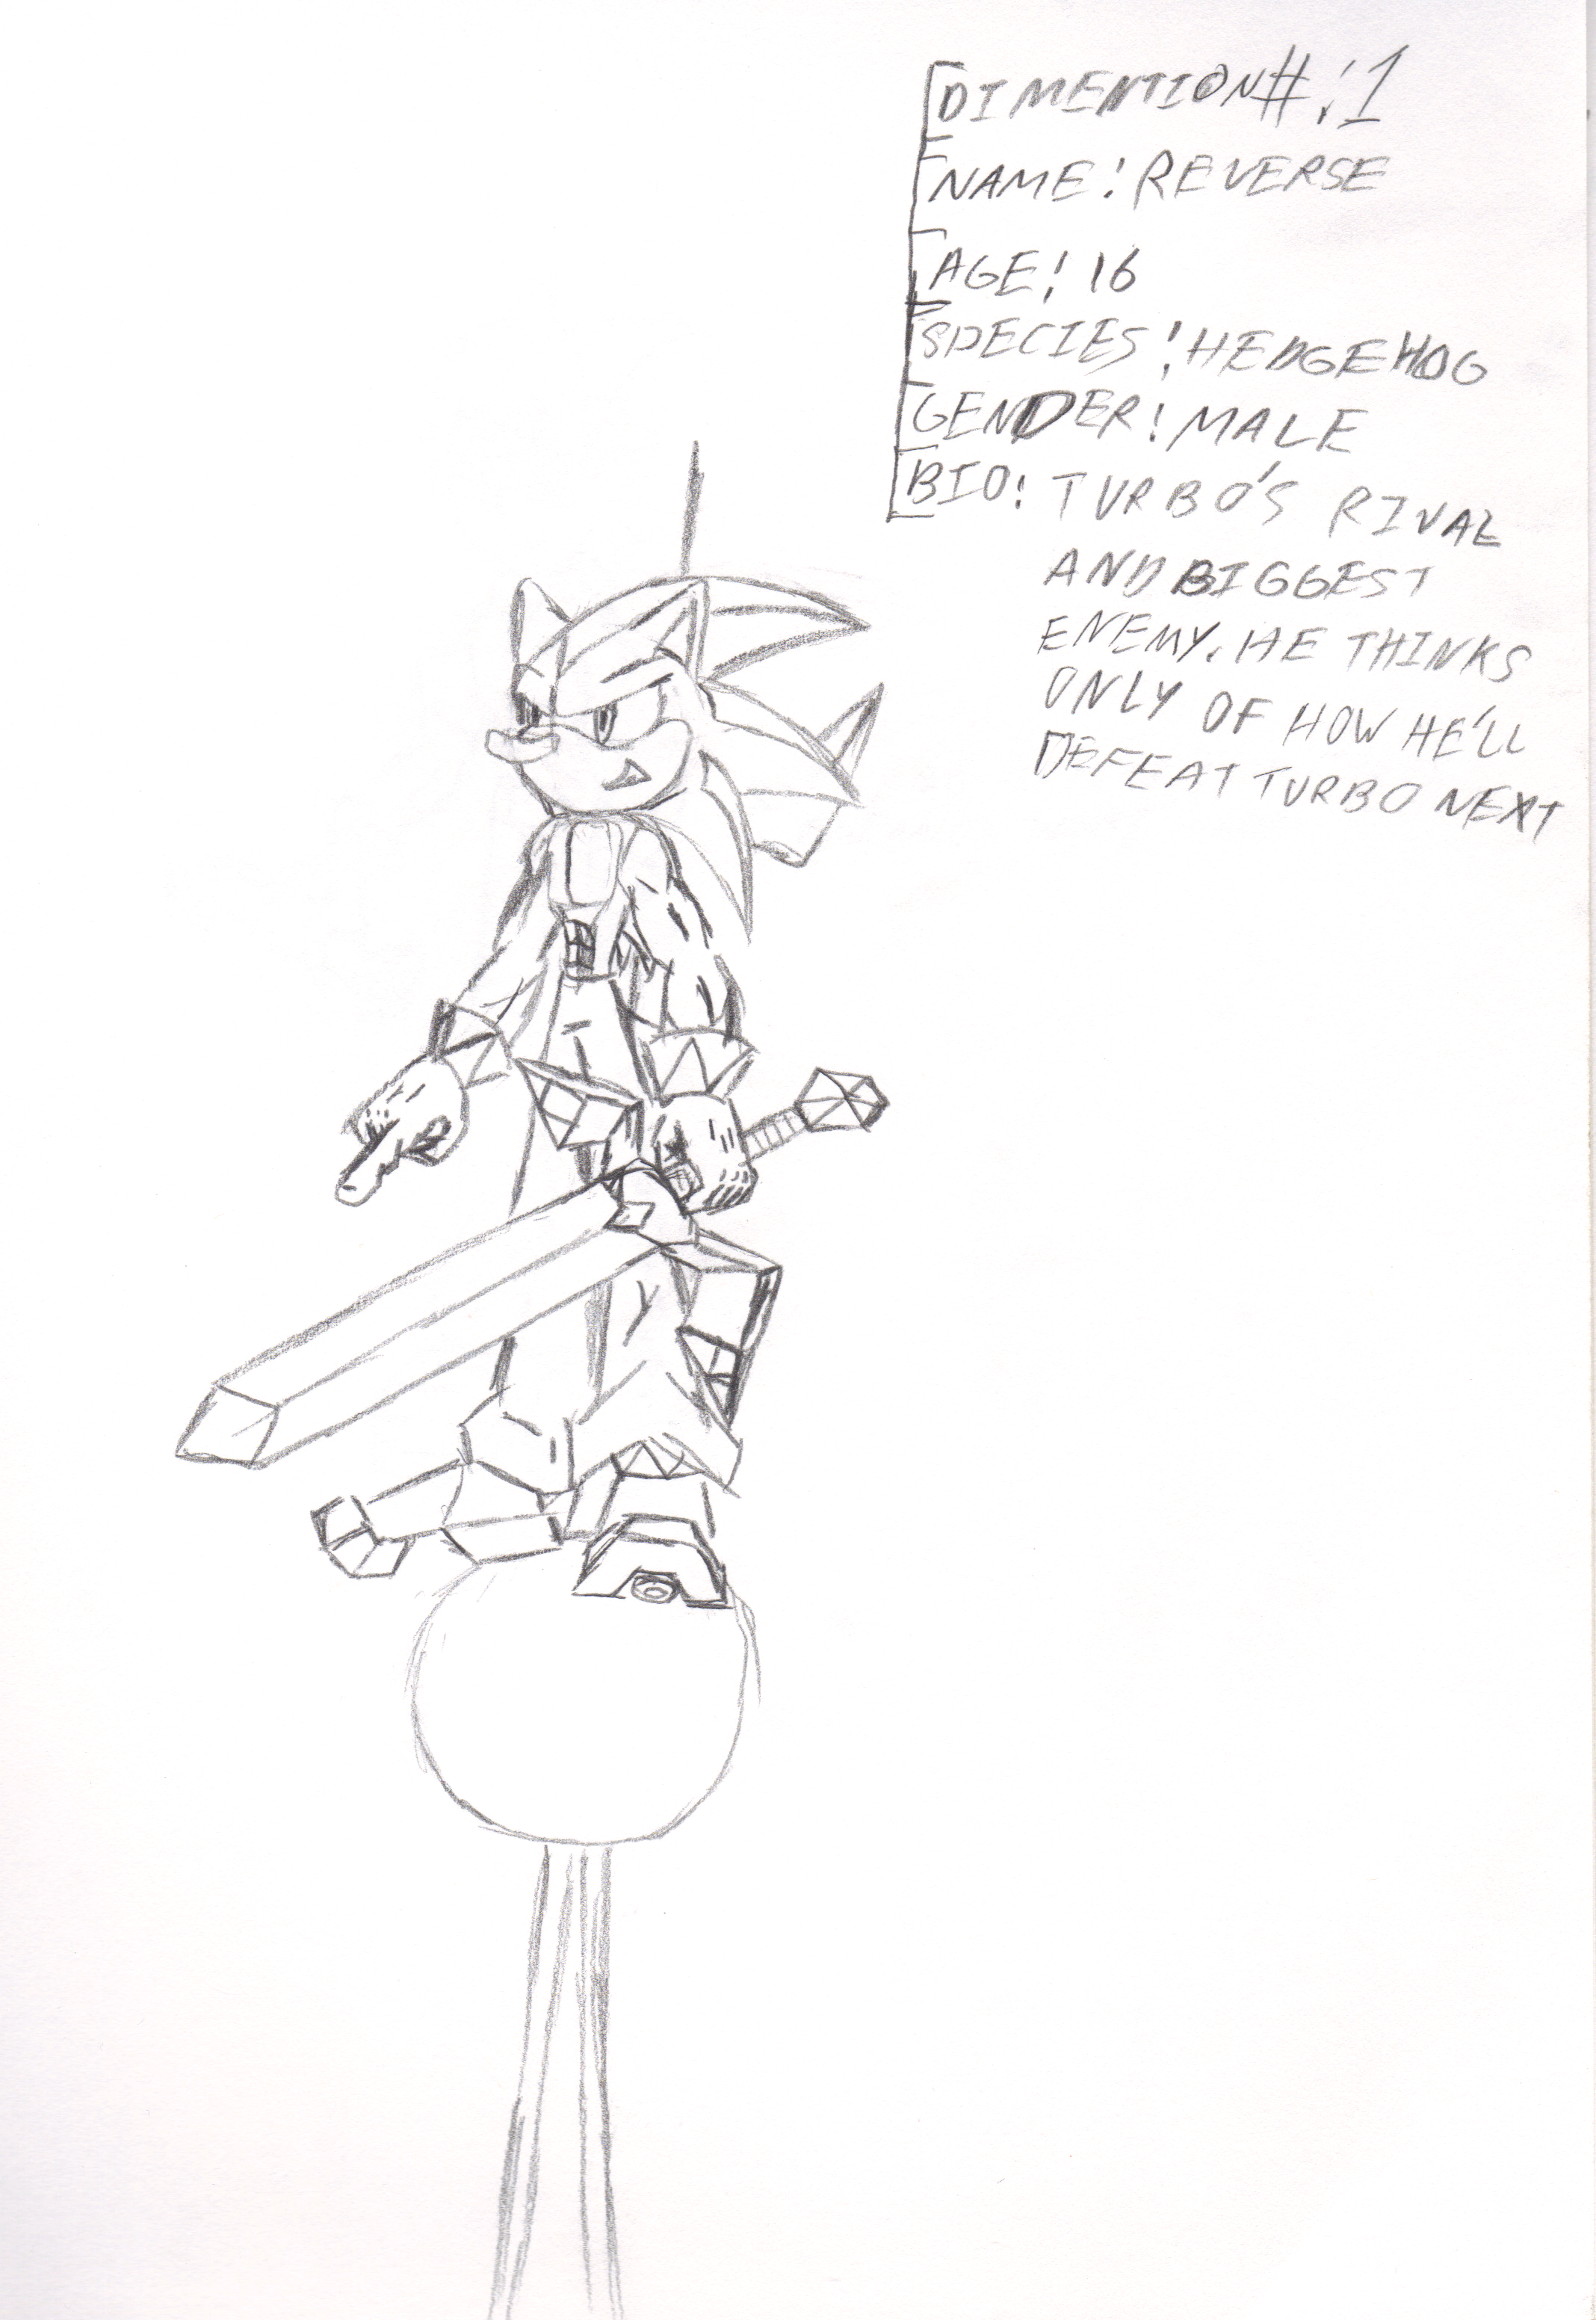 DIMENTION#:1
NAME: REVERSE
AGE: 16
SPECIES: HEDGEHOG
GENDER: MALE
BIO: TURBO'S RIVAL
AND BIGGEST
ENEMY. HE THINKS
ONLY OF HOW HE'LL
DEFEAT TURBO NEXT